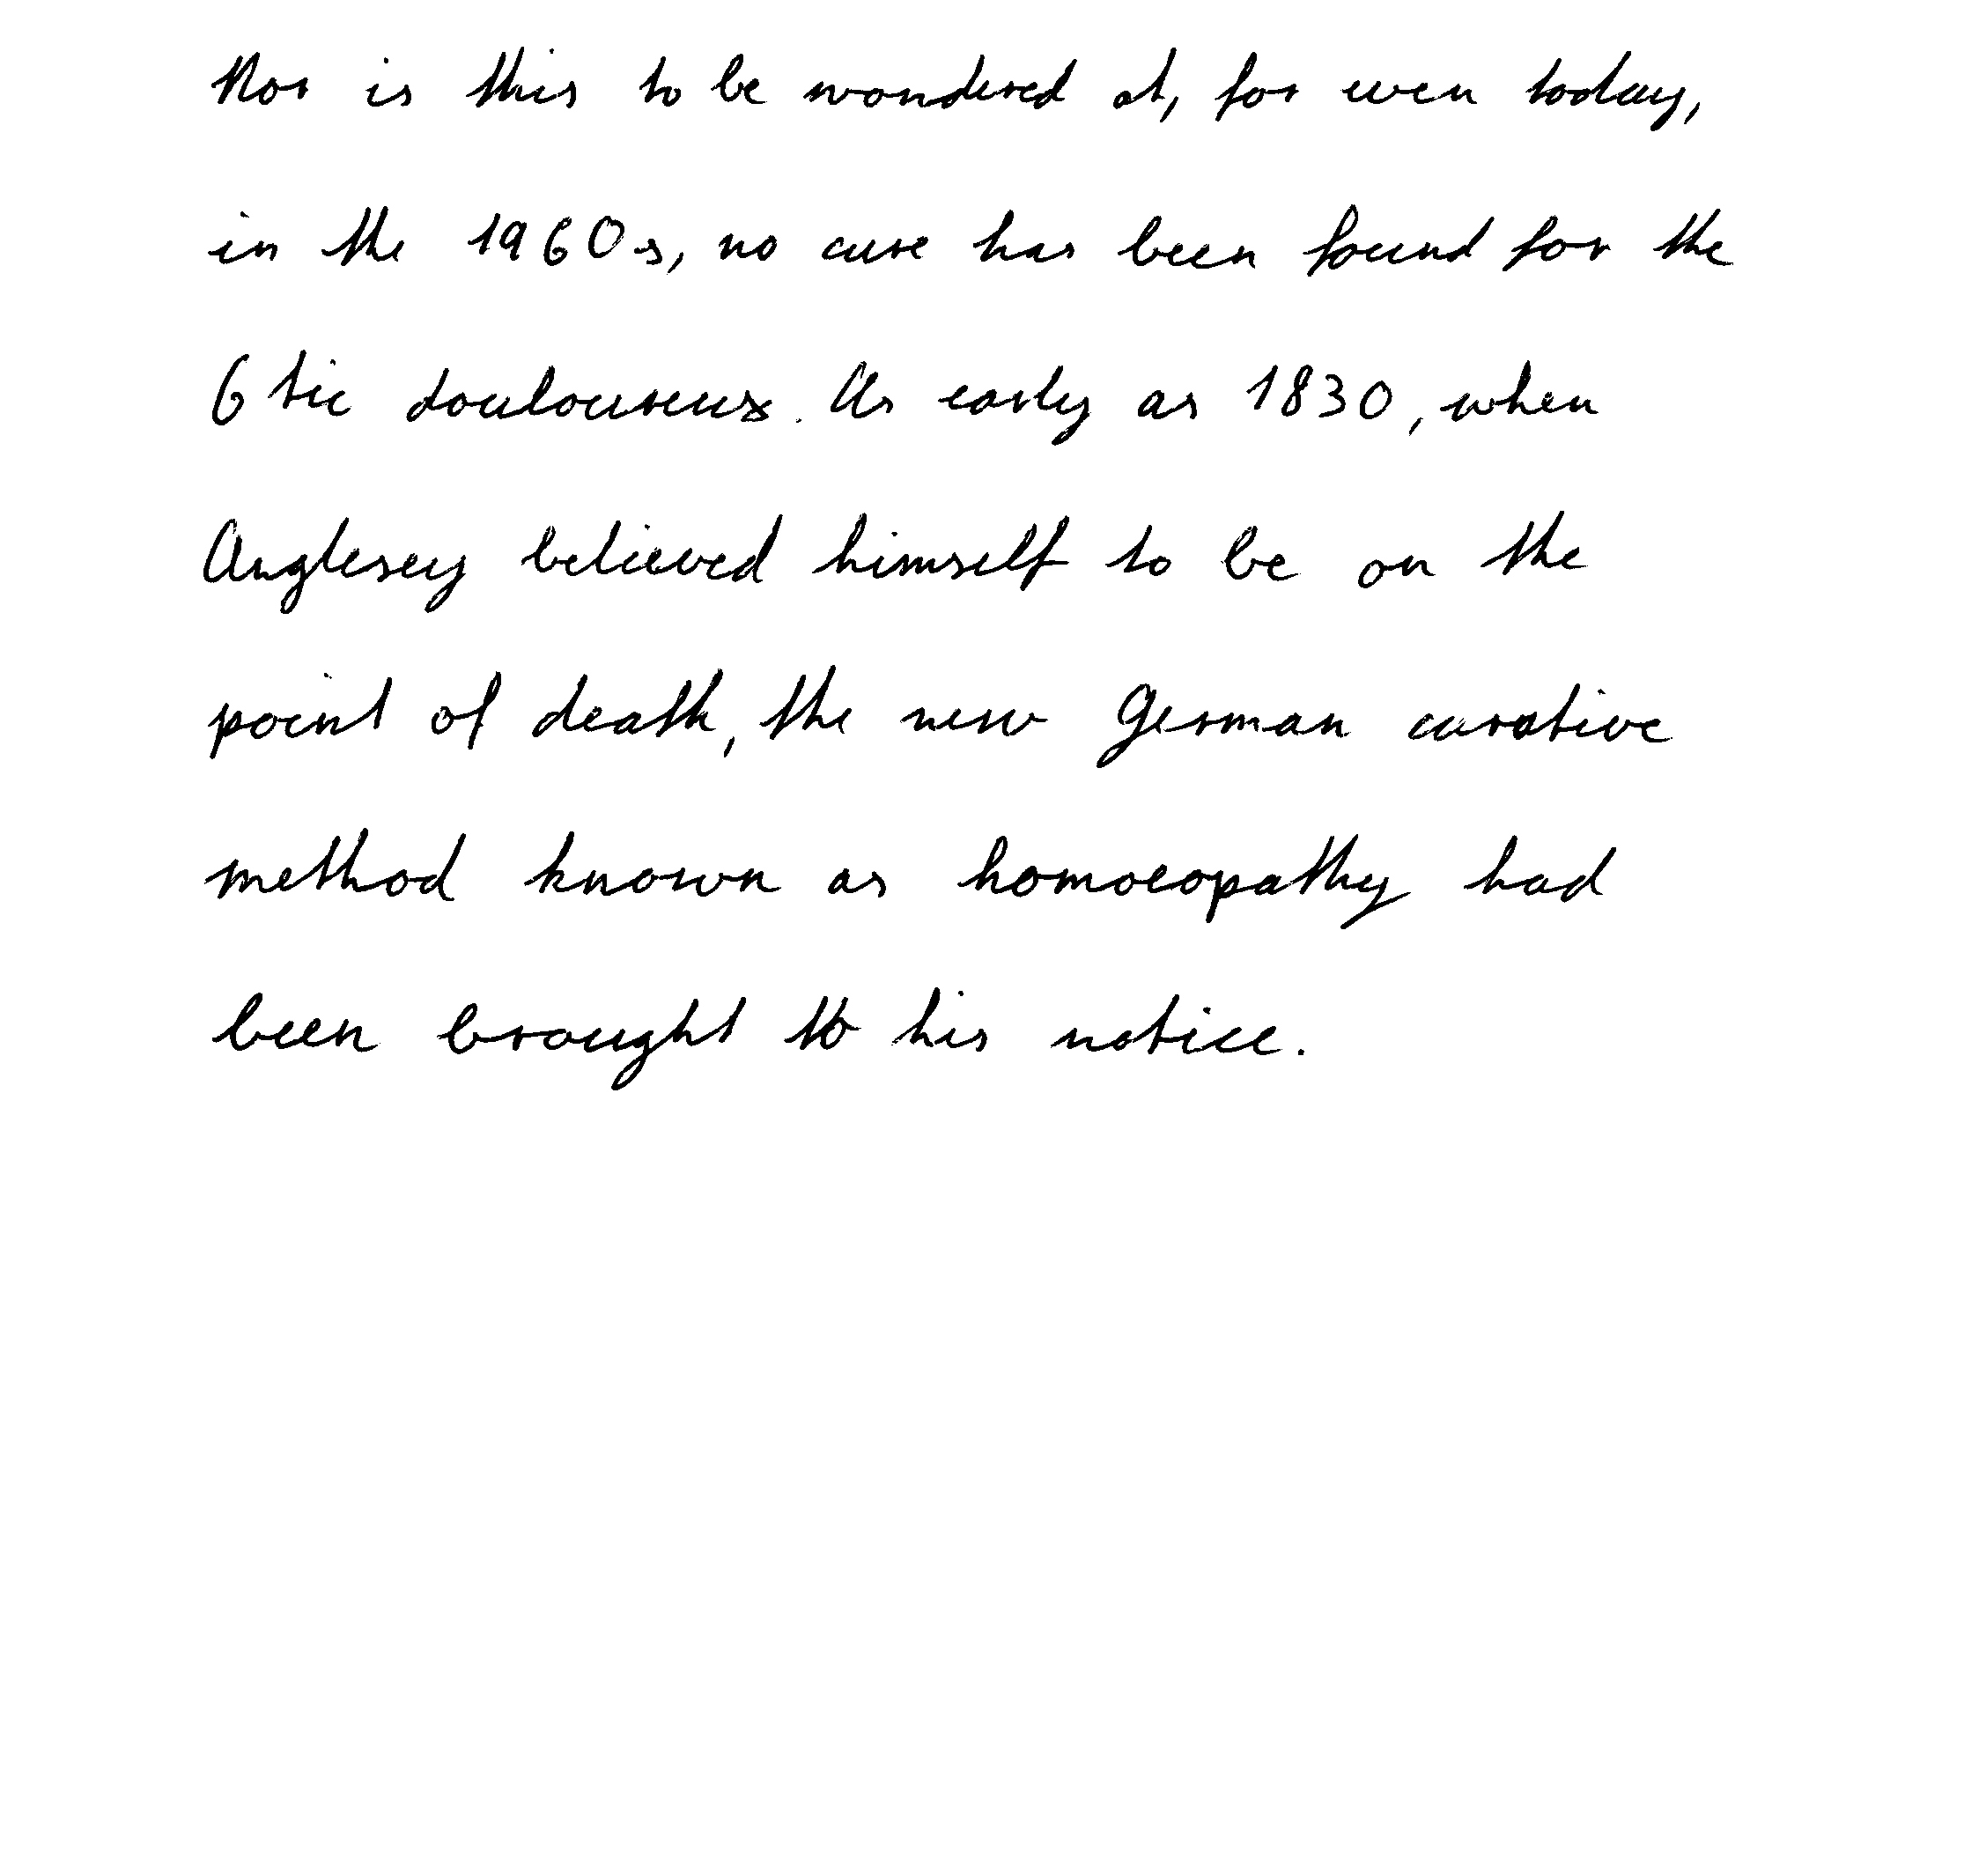 Nor is this to be wondered at, for even today,
in the 1960-s, no cure has been found for the
6 tic douloureux. As early as 1830, when
Anglesey believed himself to be on the
point of death, the new German curative
method known as homoeopathy had
been brought to his notice.